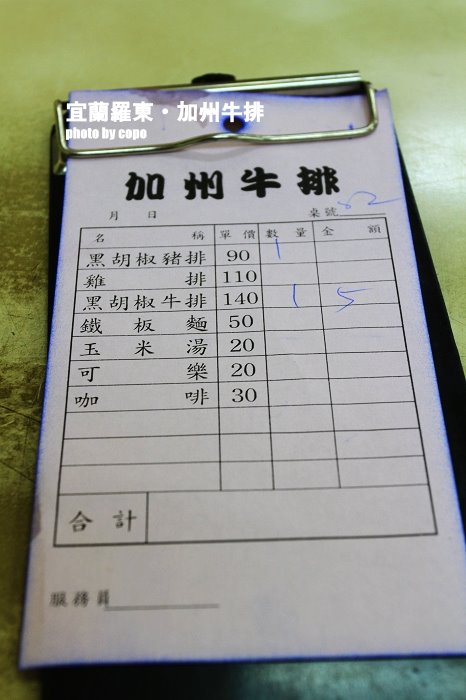 宜蘭羅東・加州牛排
photo by copo
加州牛排
月 日 桌號
名稱 單價 數量 金額
黑胡椒豬排 90 1
雞排 110
黑胡椒牛排 140 1 5
鐵板麵 50
玉米湯 20
可樂 20
咖啡 30
合計
服務員